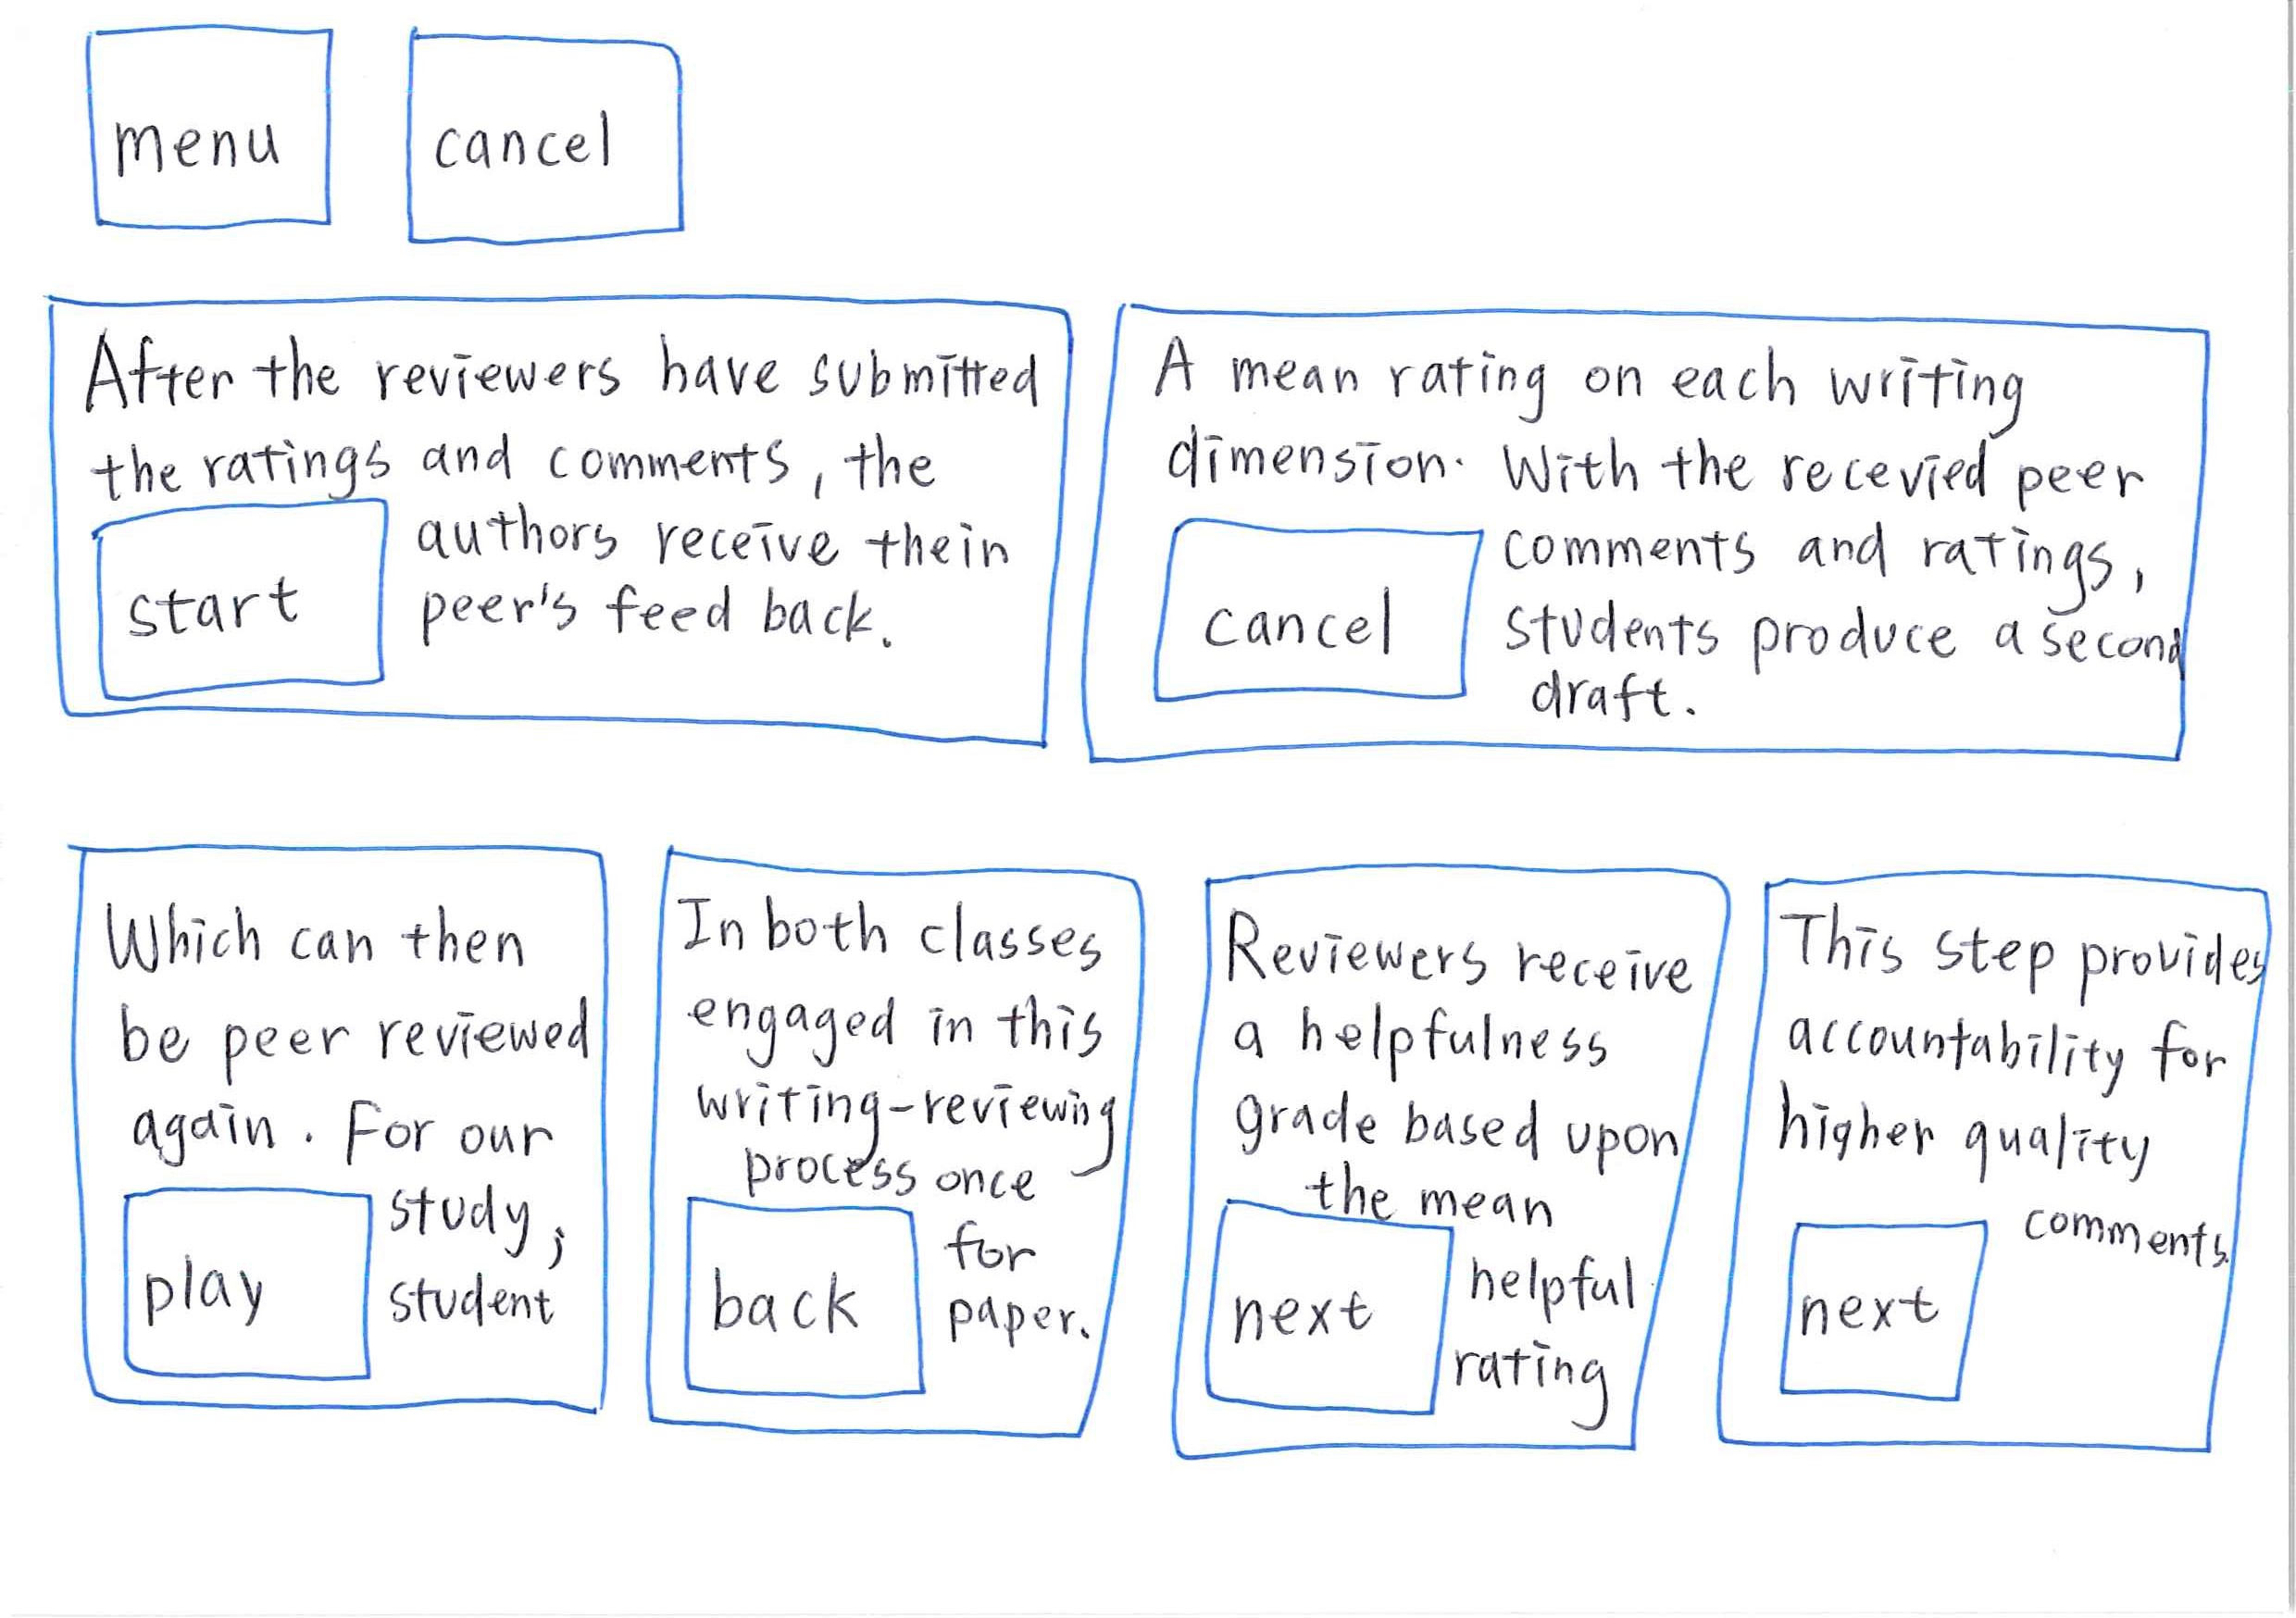 menu
cancel
After the reviewers have submitted
the ratings and comments, the
authors receive thein
peer's feed back.
start
A mean rating on each writing
dimension. With the recevied peer
comments and ratings,
students produce a second
draft.
cancel
Which can then
be peer reviewed
again. For our
study,
student
play
In both classes
engaged in this
writing-reviewing
process once
for
paper.
back
Reviewers receive
a helpfulness
grade based upon
the mean
helpful
rating
next
This step provides
accountability for
higher quality
comments.
next